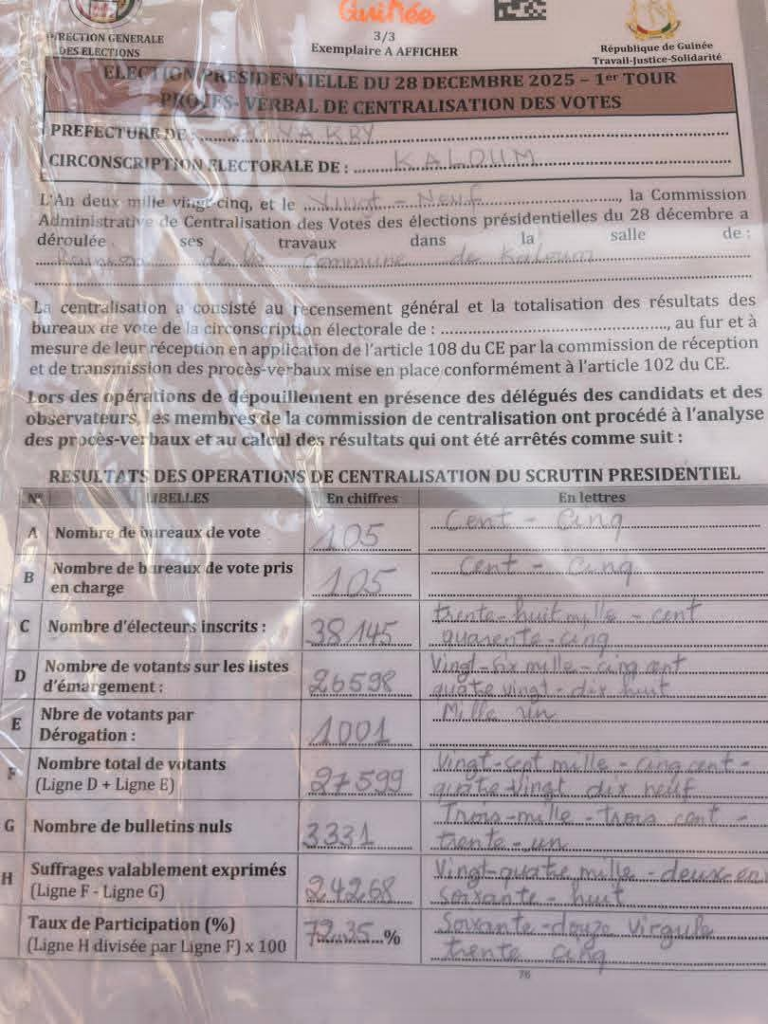 Guinée
DIRECTION GENERALE
DES ELECTIONS
3/3
Exemplaire A AFFICHER
République de Guinée
Travail-Justice-Solidarité
ELECTION PRESIDENTIELLE DU 28 DECEMBRE 2025 – 1er TOUR
PROCES- VERBAL DE CENTRALISATION DES VOTES
PREFECTURE DE : CONAKRY
CIRCONSCRIPTION ELECTORALE DE : KALOUM
L'An deux mille vingt-cinq, et le Vingt - Neuf, la Commission
Administrative de Centralisation des Votes des élections présidentielles du 28 décembre a
déroulée ses travaux dans la salle de :
de la Commune de Kaloum
La centralisation a consisté au recensement général et la totalisation des résultats des
bureaux de vote de la circonscription électorale de : , au fur et à
mesure de leur réception en application de l'article 108 du CE par la commission de réception
et de transmission des procès-verbaux mise en place conformément à l'article 102 du CE.
Lors des opérations de dépouillement en présence des délégués des candidats et des
observateurs, les membres de la commission de centralisation ont procédé à l'analyse
des procès-verbaux et au calcul des résultats qui ont été arrêtés comme suit :
RESULTATS DES OPERATIONS DE CENTRALISATION DU SCRUTIN PRESIDENTIEL
N° LIBELLES En chiffres En lettres
A Nombre de bureaux de vote 105 Cent - Cinq
B Nombre de bureaux de vote pris
en charge 105 Cent - Cinq
C Nombre d'électeurs inscrits : 38145 trente-huit mille - cent
quarente-cinq
D Nombre de votants sur les listes
d'émargement : 26598 Vingt-six mille - cinq cent
quatre vingt - dix huit
E Nbre de votants par
Dérogation : 1001 Mille un
F Nombre total de votants
(Ligne D + Ligne E) 27599 Vingt-sept mille - cinq cent -
quatre-vingt dix neuf
G Nombre de bulletins nuls 3331 Trois-mille - trois cent -
trente - un
H Suffrages valablement exprimés
(Ligne F - Ligne G) 24268 Vingt-quatre mille - deux-cen
soixante - huit
Taux de Participation (%)
(Ligne H divisée par Ligne F) x 100 72.35 % Soixante-douze virgule
trente cinq
76